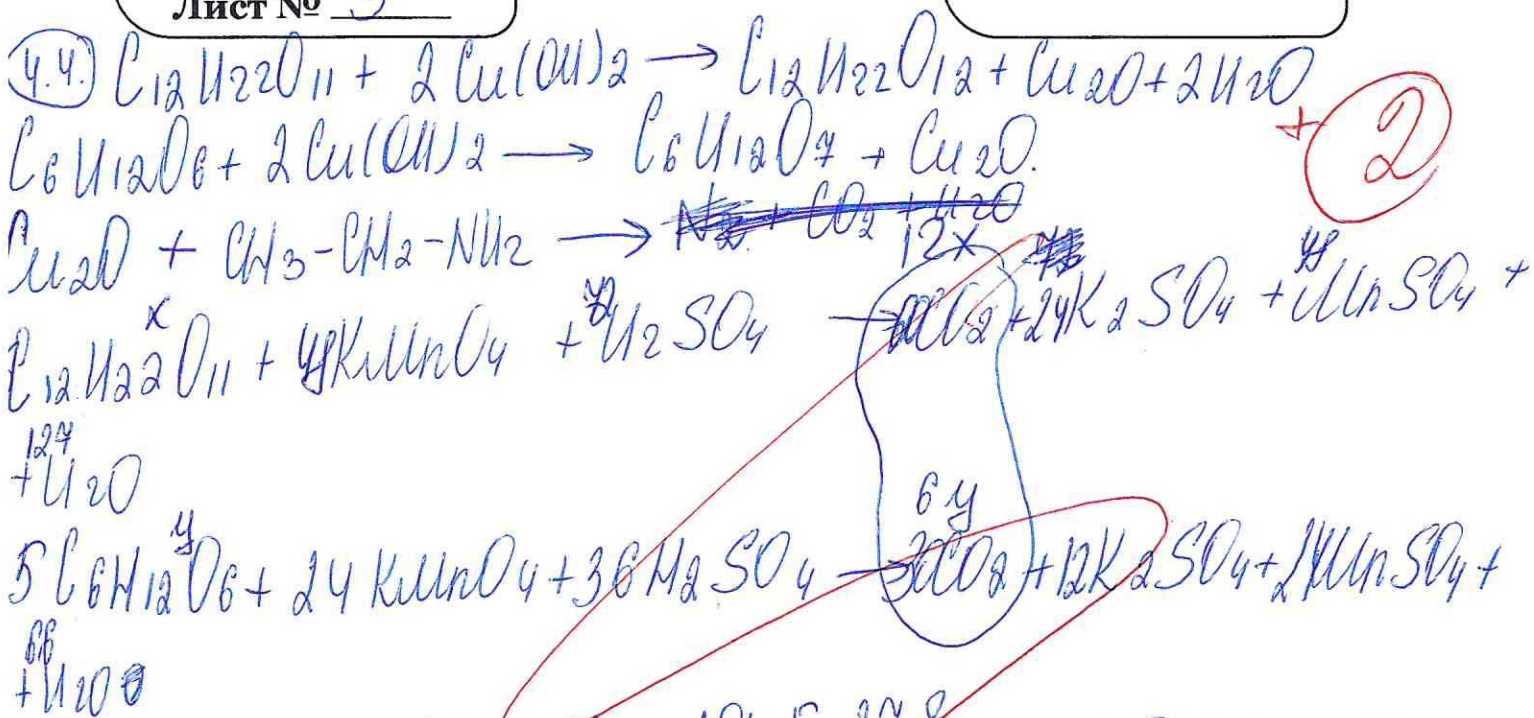 Лист №
4.4. C12H22O11 + 2Cu(OH)2 → C12H22O12 + Cu2O + 2H2O
+ 2
C6H12O6 + 2Cu(OH)2 → C6H12O7 + Cu2O.
Cu2O + CH3-CH2-NH2 →
x 12x
C12H22O11 + KMnO4 + H2SO4 → CO2 + 24K2SO4 + MnSO4 +
127
+ H2O
y 6y
5C6H12O6 + 24KMnO4 + 36H2SO4 → 30CO2 + 12K2SO4 + 24MnSO4 +
66
+ H2O